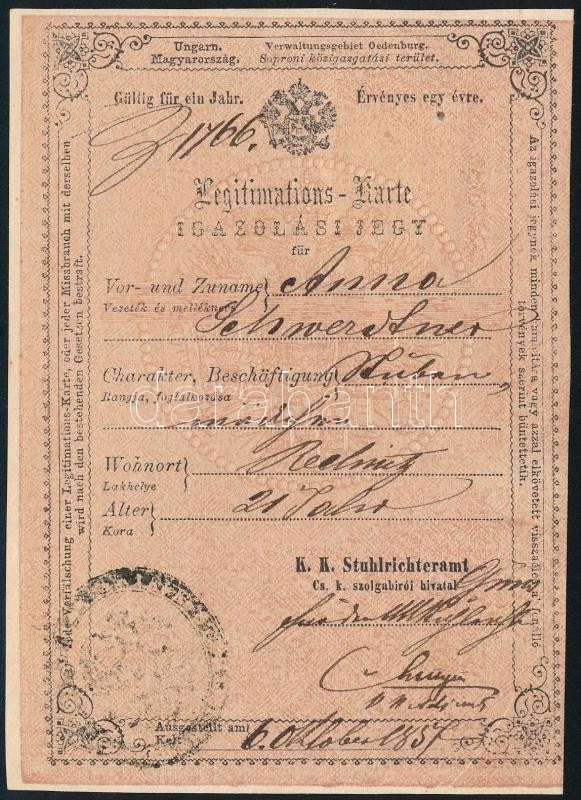 Ungarn.
Magyarország.
Verwaltungsgebiet Oedenburg.
Soproni közigazgatási terület.
Gültig für ein Jahr.
Érvényes egy évre.
1766.
Legitimations-Karte
IGAZOLÁSI JEGY
für
Vor- und Zuname Anna
Vezeték és mellékneve
Schwerdtner
Charakter, Beschäftigung Stuben
Rangja, foglalkozása
mädchen
Wohnort
Lakhelye
Alter 21 Jahr
Kora
K. K. Stuhlrichteramt
Cs. k. szolgabirói hivatal
Ausgestellt am 6. Oktober 1857
Kelt
Jede Verfälschung einer Legitimations-Karte, oder jeder Missbrauch mit derselben
wird nach den bestehenden Gesetzen bestraft.
Az igazolási jegynek minden hamisítása vagy azzal elkövetett visszaélés a fenálló
törvények szerint büntettetik.
darabanth